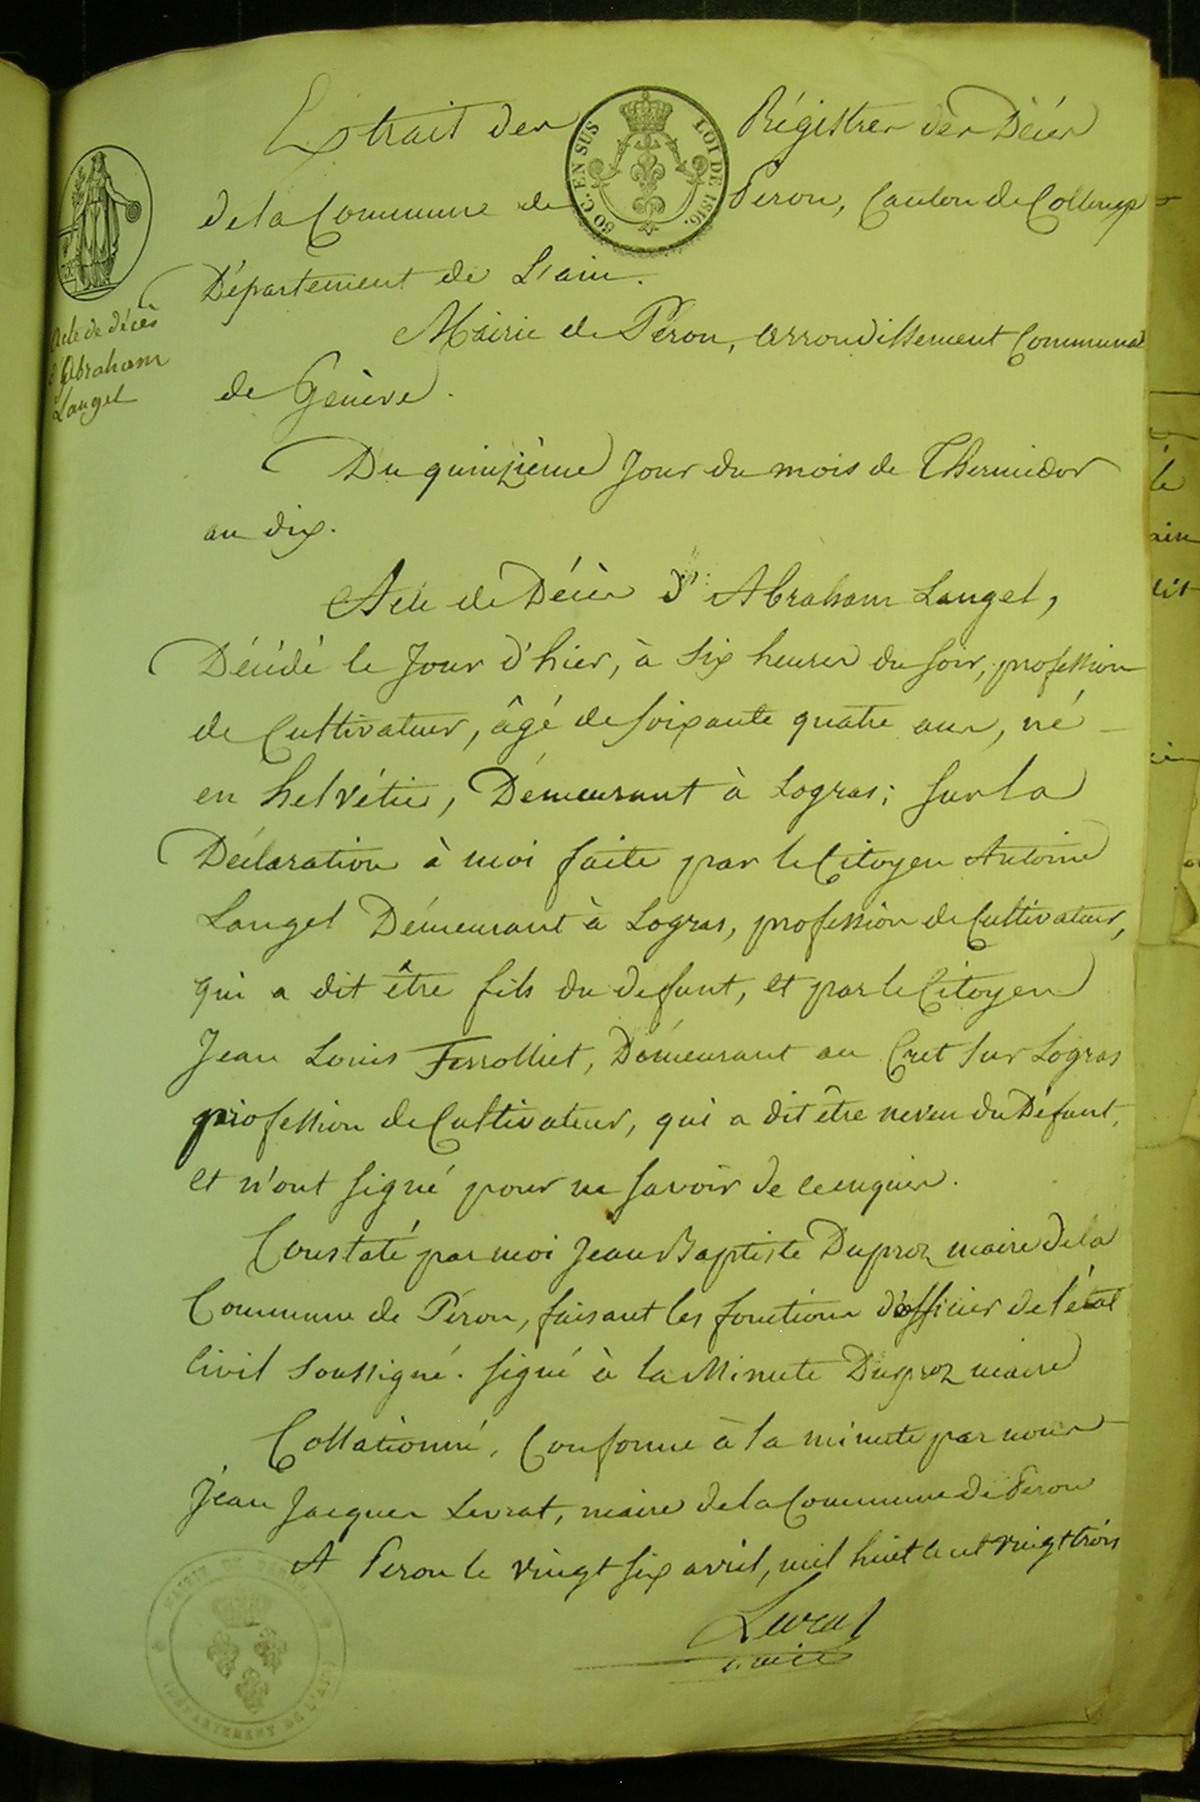 Extrait des Régistres des Décès
50 C. EN SUS LOI DE 1816.
de la Commune de Peron, Canton de Collonges
Département de L'ain.
Acte de décès
d'Abraham
Langel
Mairie de Péron, arrondissement Communal
de Genève.
Du quinzième Jour du mois de Thermidor
an dix.
Acte de Décès d'Abraham Langel,
Décédé le Jour d'hier, à Six heures du soir, profession
de Cultivateur, âgé de soixante quatre ans, né
en helvétie, Démeurant à Logras; sur la
Déclaration à moi faite par le Citoyen Antoine
Langel Démeurant à Logras, profession de Cultivateur,
qui a dit être fils du defunt, et par le Citoyen
Jean Louis Ferrolliet, Démeurant au Cret sur Logras
profession de Cultivateur, qui a dit être neveu du Défunt,
et n'ont signé pour ne savoir de ce enquis.
Constaté par moi Jean Baptiste Duproz maire de la
Commune de Péron, faisant les fonctions d'officier de l'état
Civil Soussigné. signé à la Minute Duproz maire
Collationné, Conforme à la minute par nous
Jean Jacques Levrat, maire de la Commune de Peron
A Peron le vingt six avril, mil huit cent vingt trois
Levrat
maire
MAIRIE DE PERON
DÉPARTEMENT DE L'AIN